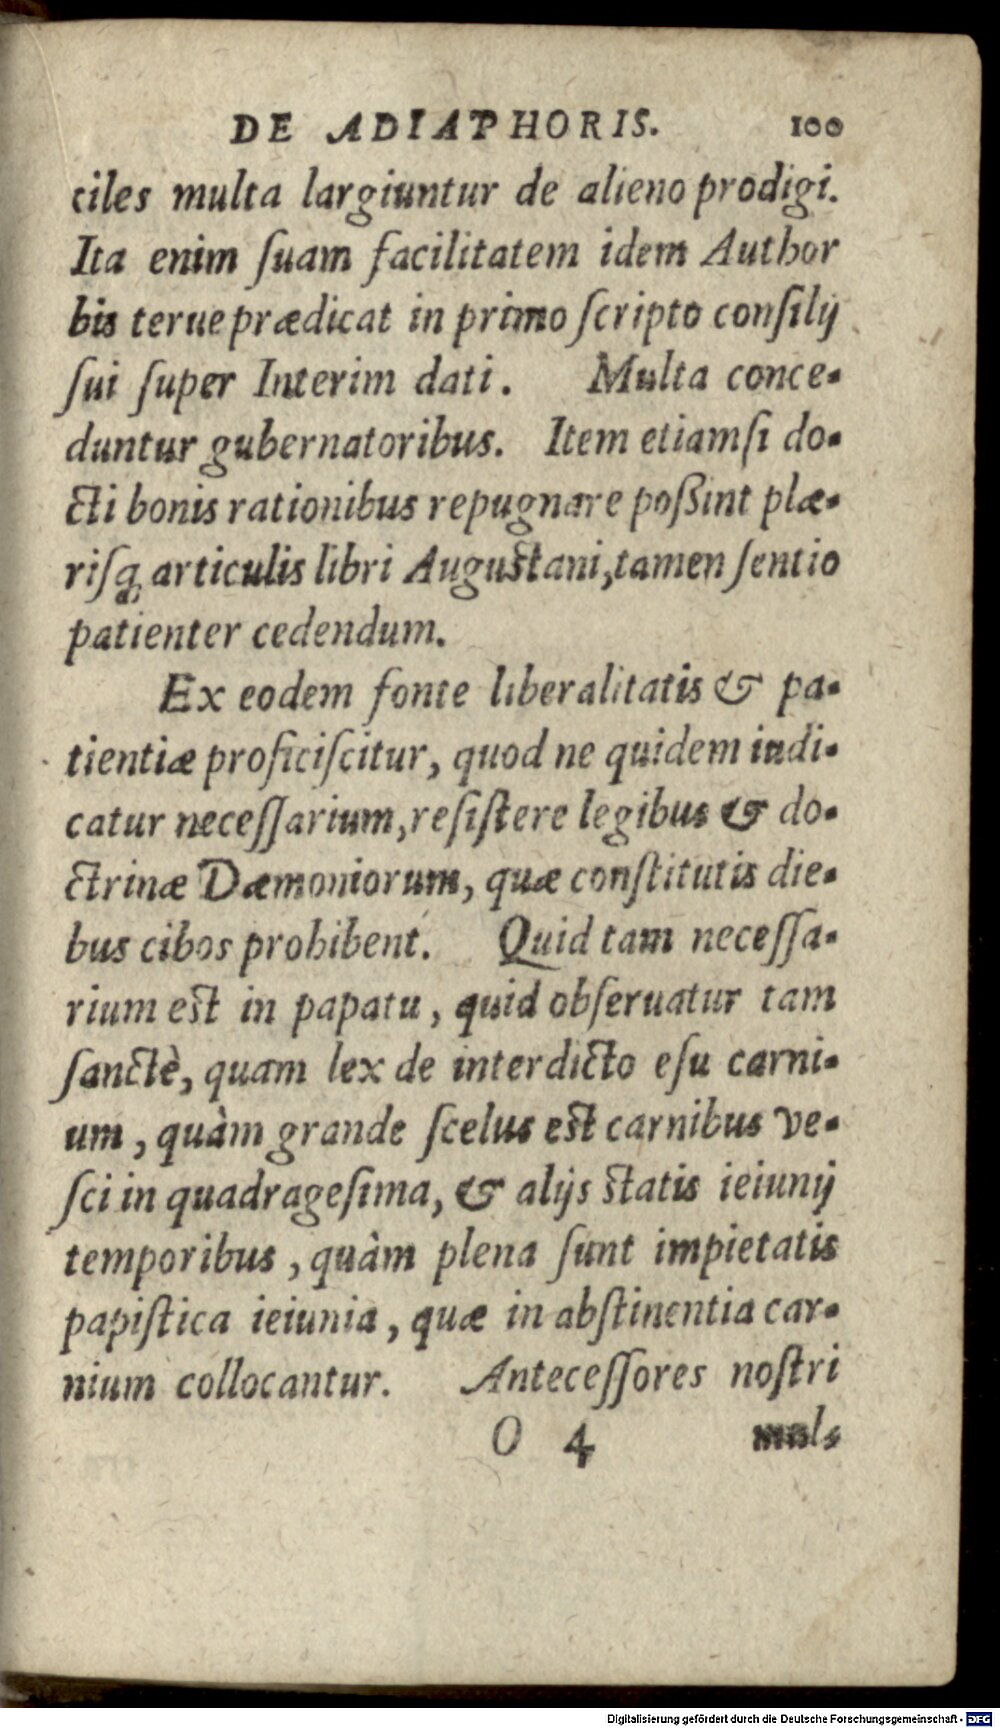 DE ADIAPHORIS. 100
ciles multa largiuntur de alieno prodigi.
Ita enim ſuam facilitatem idem Author
bis terue prædicat in primo ſcripto conſilij
ſui ſuper Interim dati. Multa conce-
duntur gubernatoribus. Item etiamſi do-
cti bonis rationibus repugnare poßint plæ-
riſq; articulis libri Auguſtani, tamen ſentio
patienter cedendum.
Ex eodem fonte liberalitatis & pa-
tientiæ proficiſcitur, quod ne quidem iudi-
catur neceſſarium, reſiſtere legibus & do-
ctrinæ Dæmoniorum, quæ conſtitutis die-
bus cibos prohibent. Quid tam neceſſa-
rium eſt in papatu, quid obſeruatur tam
ſanctè, quam lex de interdicto eſu carni-
um, quàm grande ſcelus eſt carnibus ve-
ſci in quadrageſima, & alijs ſtatis ieiunij
temporibus, quàm plena ſunt impietatis
papiſtica ieiunia, quæ in abſtinentia car-
nium collocantur. Anteceſſores noſtri
O 4 mul-
Digitalisierung gefördert durch die Deutsche Forschungsgemeinschaft - DFG